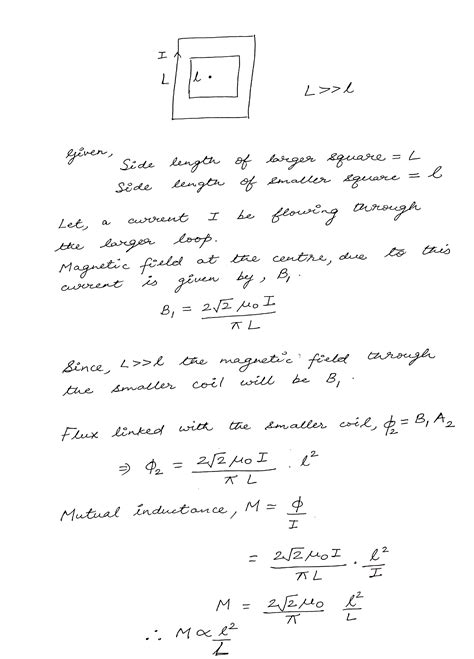 I
L
l
L>>l
Given,
Side length of larger square = L
Side length of smaller square = l
Let, a current I be flowing through
the larger loop.
Magnetic field at the centre, due to this
current is given by, B₁.
B₁ = 2√2 μ₀ I / π L
Since, L>>l the magnetic field through
the smaller coil will be B₁.
Flux linked with the smaller coil, ϕ₂ = B₁ A₂
⇒ ϕ₂ = 2√2 μ₀ I / π L . l²
Mutual inductance, M = ϕ / I
= 2√2 μ₀ I / π L . l² / I
M = 2√2 μ₀ / π l² / L
∴ M ∝ l² / L